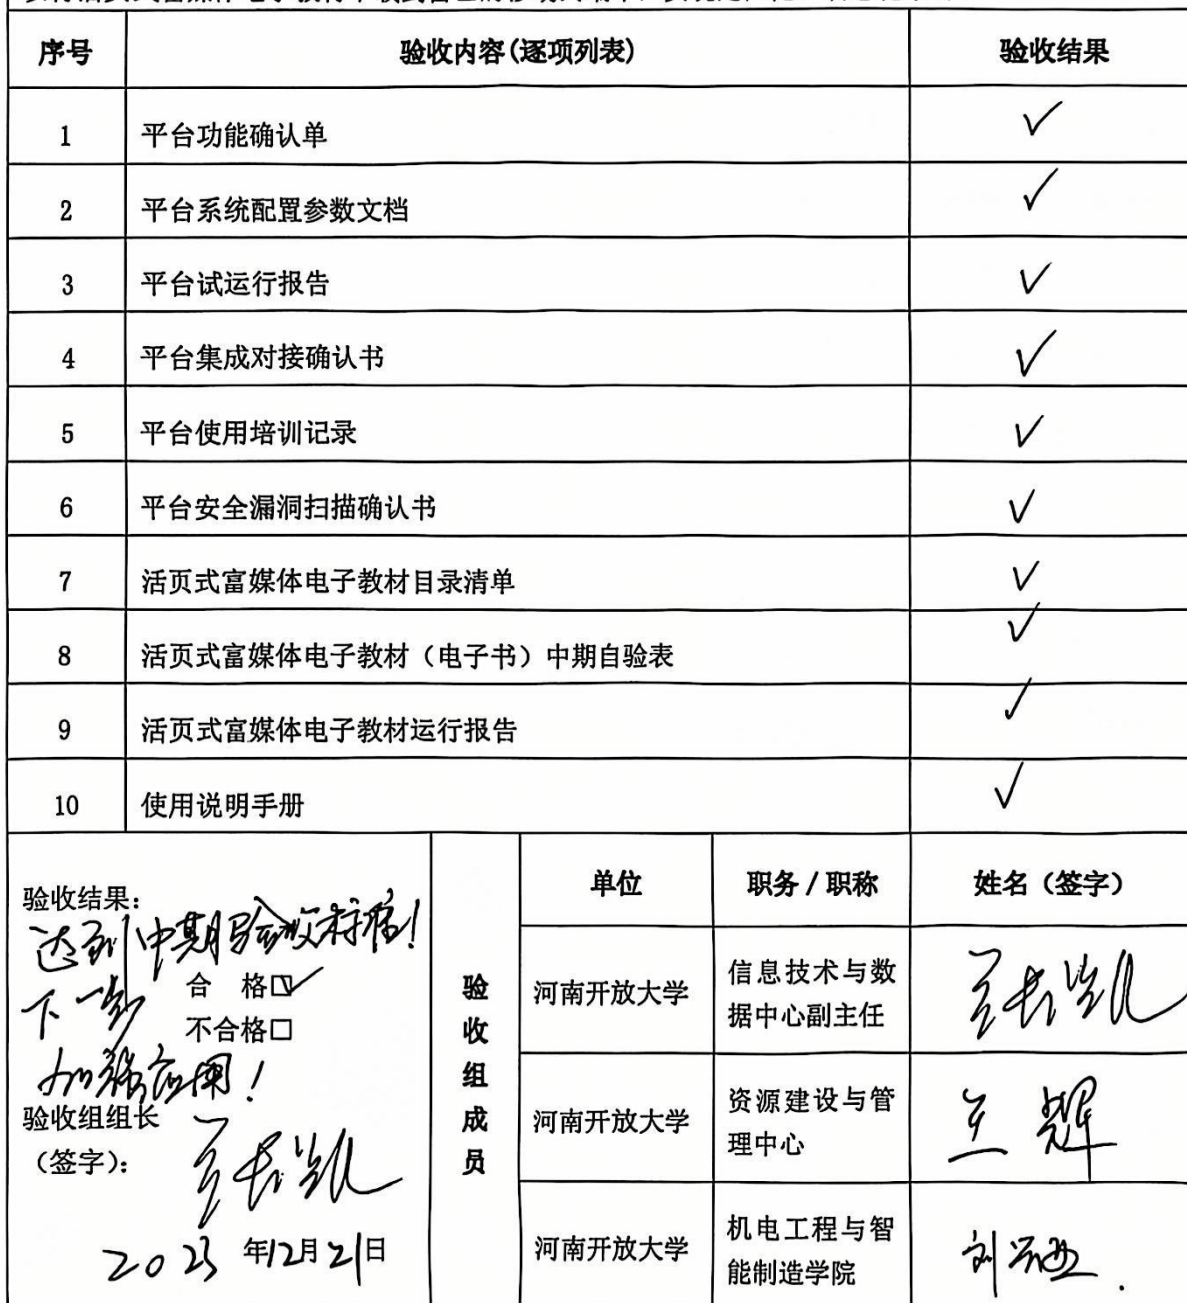 序号 验收内容(逐项列表) 验收结果
1 平台功能确认单 ✓
2 平台系统配置参数文档 ✓
3 平台试运行报告 ✓
4 平台集成对接确认书 ✓
5 平台使用培训记录 ✓
6 平台安全漏洞扫描确认书 ✓
7 活页式富媒体电子教材目录清单 ✓
8 活页式富媒体电子教材（电子书）中期自验表 ✓
9 活页式富媒体电子教材运行报告 ✓
10 使用说明手册 ✓
验收结果：
达到中期验收标准！
下一步
合 格☑
不合格□
加强应用！
验收组组长
（签字）：
2023 年12月21日
验收组成员
单位 职务／职称 姓名（签字）
河南开放大学 信息技术与数
据中心副主任
河南开放大学 资源建设与管
理中心 王辉
河南开放大学 机电工程与智
能制造学院 刘